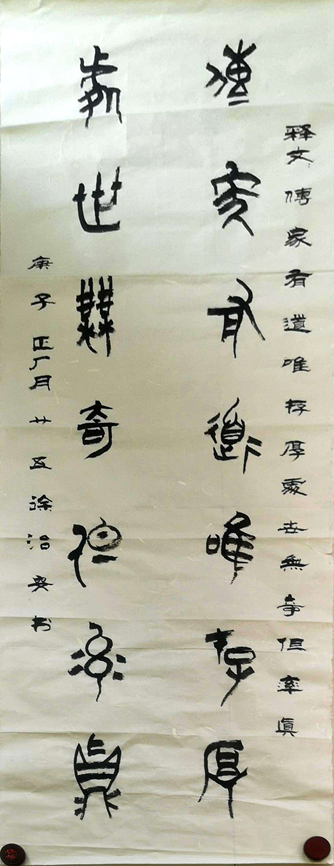 释文傳家有道唯存厚處世無奇但率真
傳家有道唯存厚
處世無奇但率真
庚子正月廿五徐治书